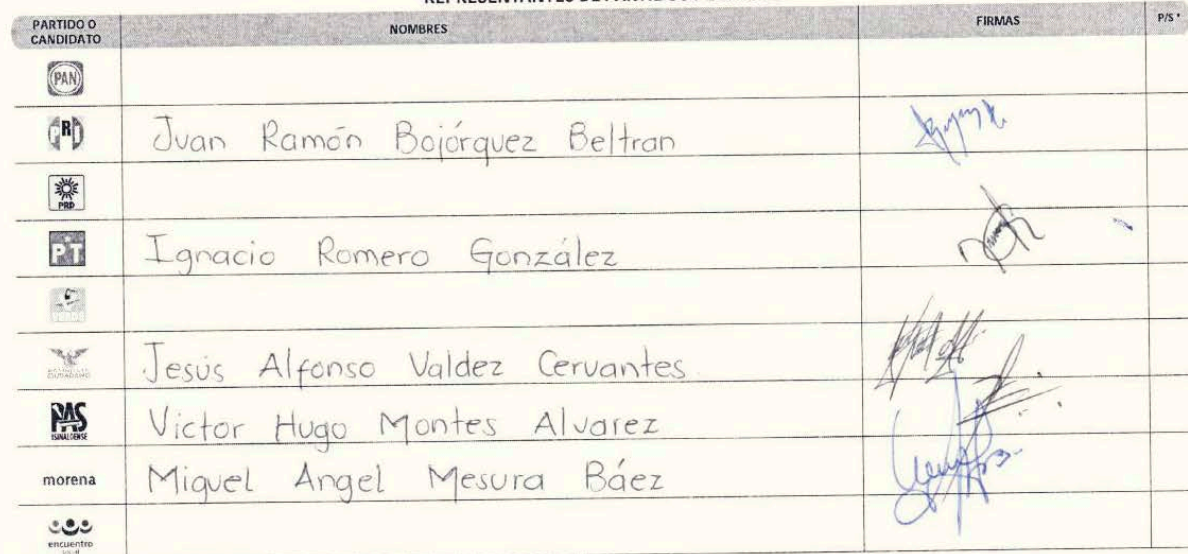 PARTIDO O CANDIDATO NOMBRES FIRMAS P/S*
PAN
PRI
Juan Ramón Bojórquez Beltran
PRD
PT Ignacio Romero González
CIUDADANO Jesús Alfonso Valdez Cervantes
PAS Victor Hugo Montes Alvarez
SINALOENSE
morena Miguel Angel Mesura Báez
encuentro